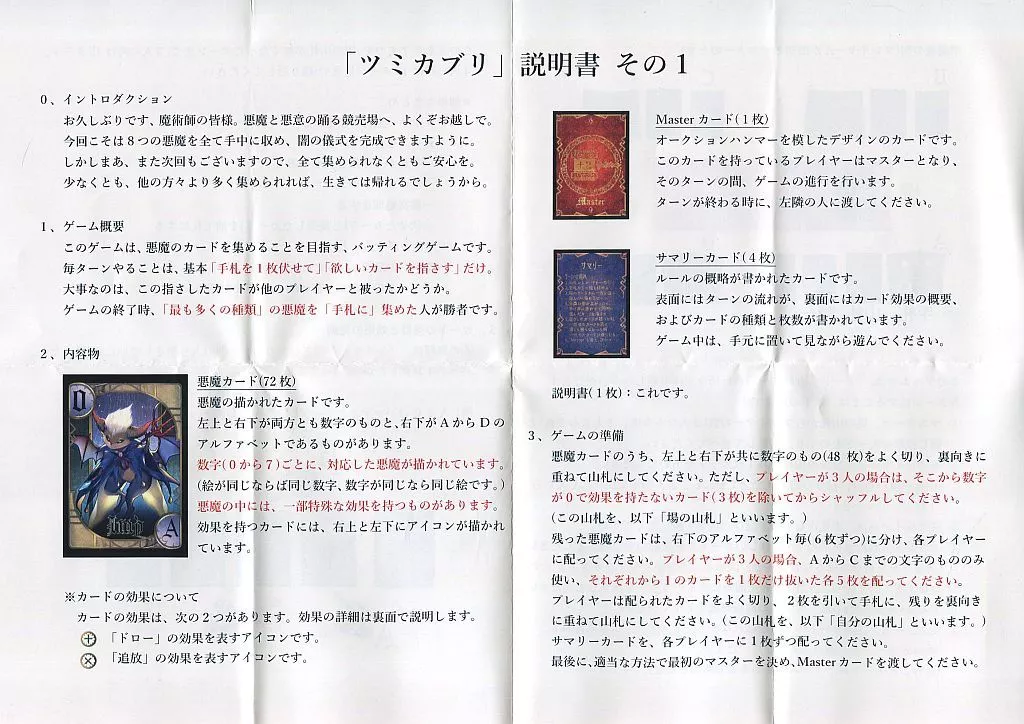 「ツミカブリ」説明書 その１
0、イントロダクション
お久しぶりです、魔術師の皆様。悪魔と悪意の踊る競売場へ、よくぞお越しで。
今回こそは８つの悪魔を全て手中に収め、闇の儀式を完成できますように。
しかしまあ、また次回もございますので、全て集められなくともご安心を。
少なくとも、他の方々より多く集められれば、生きては帰れるでしょうから。
1、ゲーム概要
このゲームは、悪魔のカードを集めることを目指す、バッティングゲームです。
毎ターンやることは、基本「手札を１枚伏せて」「欲しいカードを指さす」だけ。
大事なのは、この指さしたカードが他のプレイヤーと被ったかどうか。
ゲームの終了時、「最も多くの種類」の悪魔を「手札に」集めた人が勝者です。
2、内容物
0
Imp
A
悪魔カード(72 枚)
悪魔の描かれたカードです。
左上と右下が両方とも数字のものと、右下が A から D の
アルファベットであるものがあります。
数字(０から７)ごとに、対応した悪魔が描かれています。
(絵が同じならば同じ数字、数字が同じなら同じ絵です。)
悪魔の中には、一部特殊な効果を持つものがあります。
効果を持つカードには、右上と左下にアイコンが描かれ
ています。
※カードの効果について
カードの効果は、次の２つがあります。効果の詳細は裏面で説明します。
「ドロー」の効果を表すアイコンです。
「追放」の効果を表すアイコンです。
Master
Master カード(１枚)
オークションハンマーを模したデザインのカードです。
このカードを持っているプレイヤーはマスターとなり、
そのターンの間、ゲームの進行を行います。
ターンが終わる時に、左隣の人に渡してください。
サマリー
サマリーカード(４枚)
ルールの概略が書かれたカードです。
表面にはターンの流れが、裏面にはカード効果の概要、
およびカードの種類と枚数が書かれています。
ゲーム中は、手元に置いて見ながら遊んでください。
説明書(１枚)：これです。
3、ゲームの準備
悪魔カードのうち、左上と右下が共に数字のもの(48 枚)をよく切り、裏向きに
重ねて山札にしてください。ただし、プレイヤーが３人の場合は、そこから数字
が０で効果を持たないカード(３枚)を除いてからシャッフルしてください。
(この山札を、以下「場の山札」といいます。)
残った悪魔カードは、右下のアルファベット毎(６枚ずつ)に分け、各プレイヤー
に配ってください。プレイヤーが３人の場合、A から C までの文字のもののみ
使い、それぞれから１のカードを１枚だけ抜いた各５枚を配ってください。
プレイヤーは配られたカードをよく切り、２枚を引いて手札に、残りを裏向き
に重ねて山札にしてください。(この山札を、以下「自分の山札」といいます。)
サマリーカードを、各プレイヤーに１枚ずつ配ってください。
最後に、適当な方法で最初のマスターを決め、Master カードを渡してください。